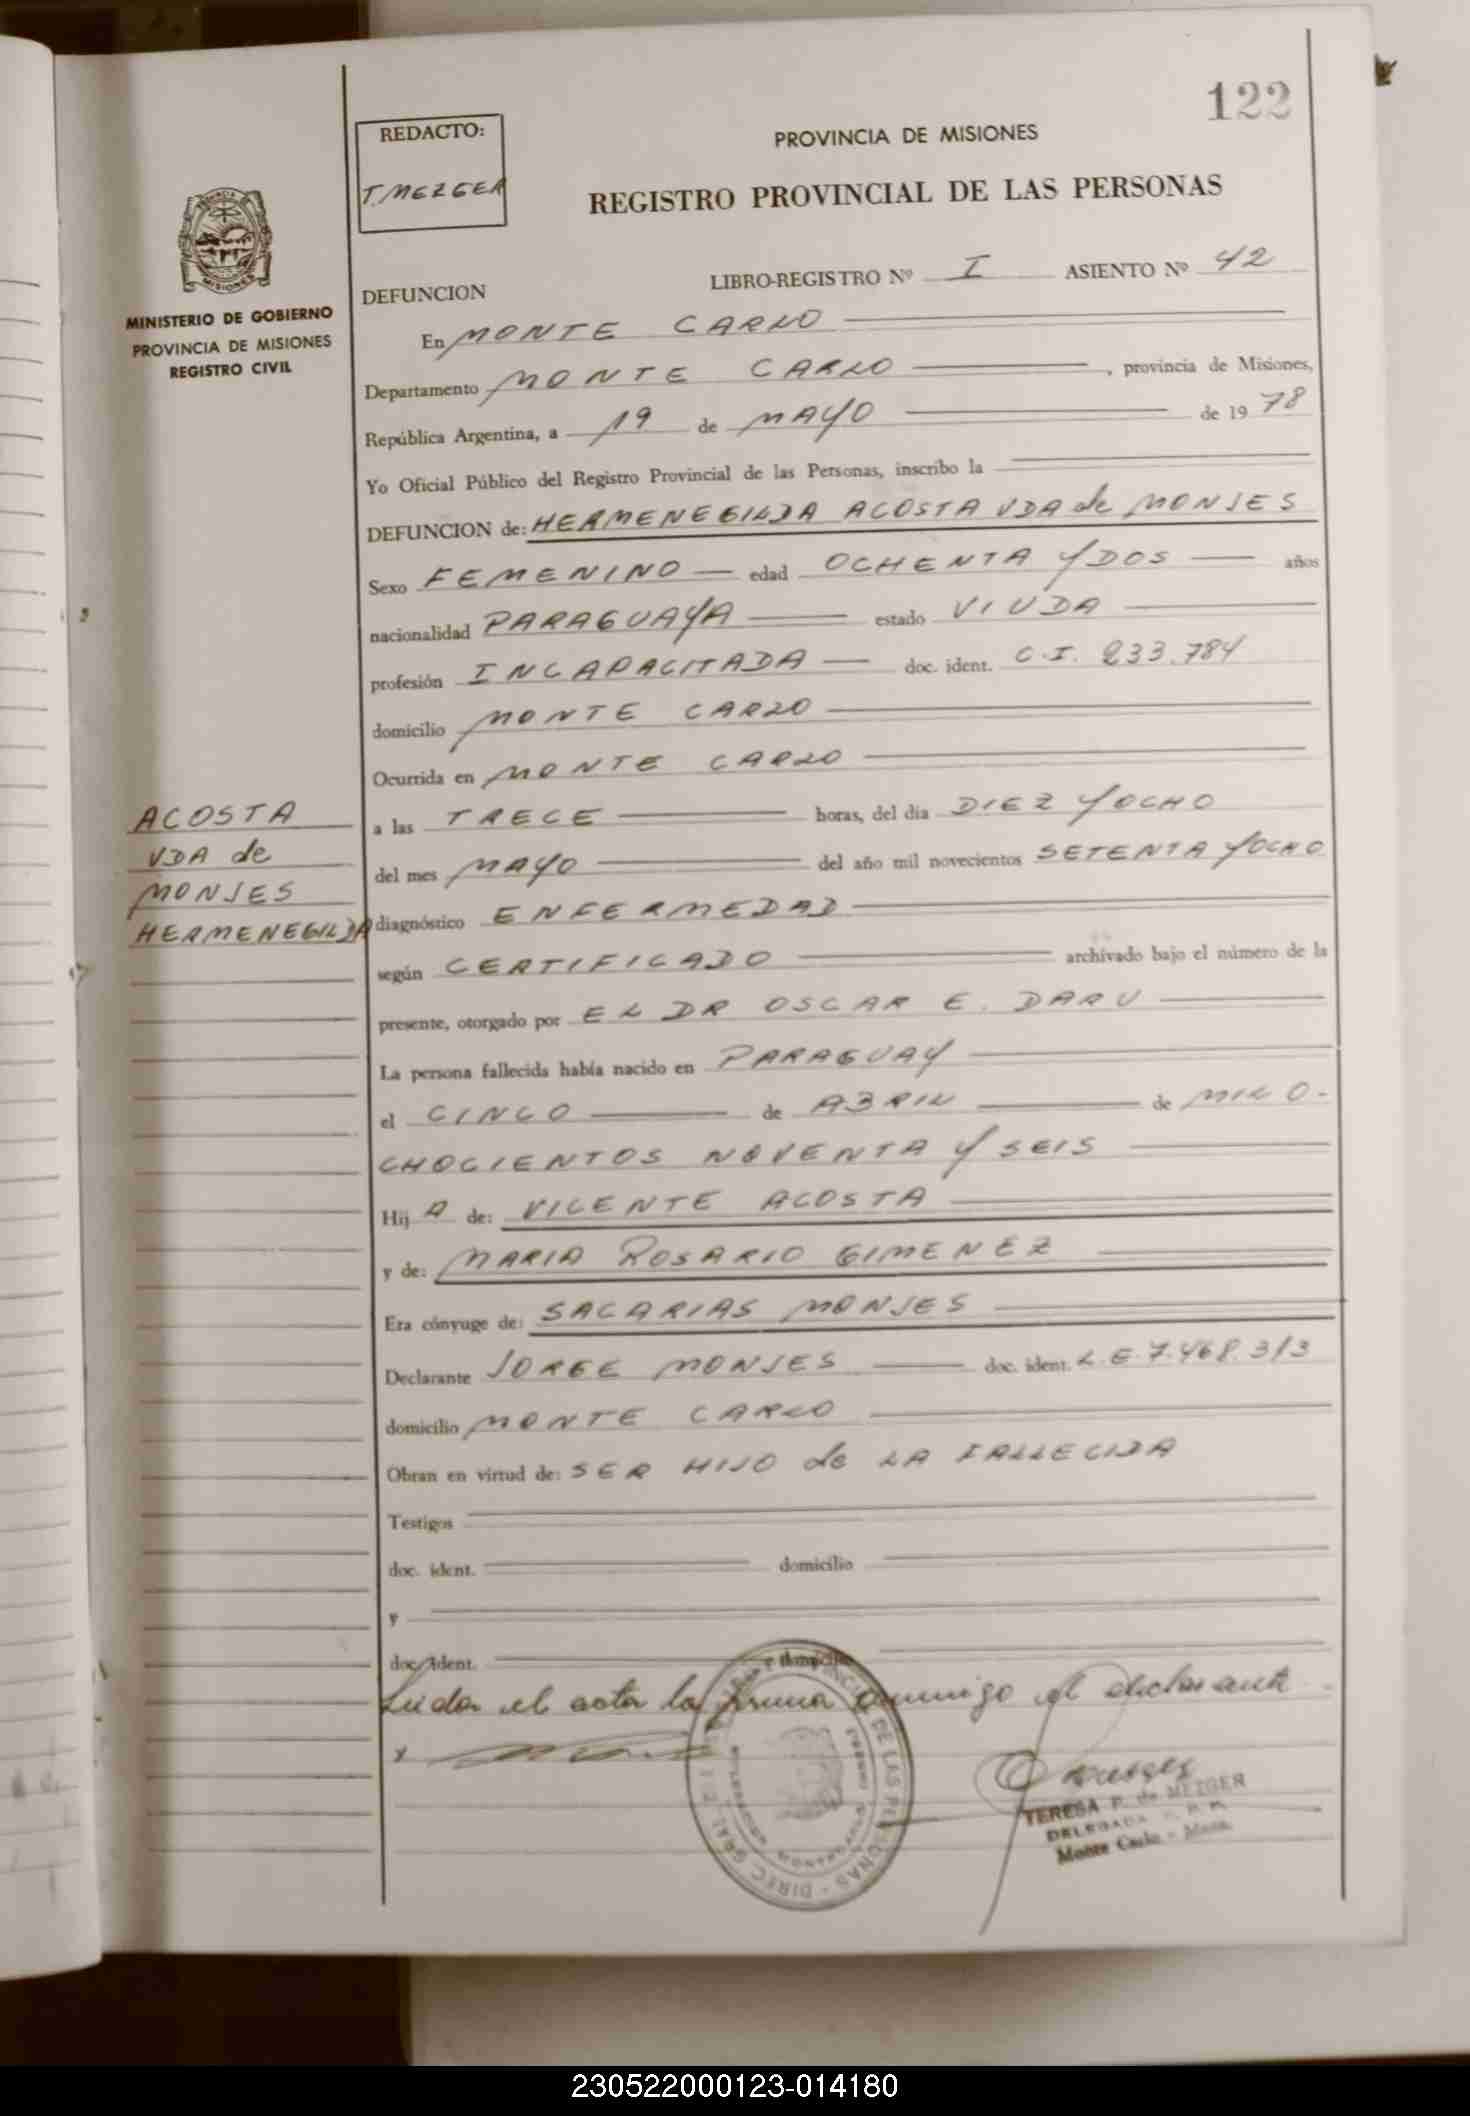 122
REDACTO:
T. MEZGER
PROVINCIA DE MISIONES
REGISTRO PROVINCIAL DE LAS PERSONAS
MINISTERIO DE GOBIERNO
PROVINCIA DE MISIONES
REGISTRO CIVIL
DEFUNCION LIBRO-REGISTRO Nº I ASIENTO Nº 42
En MONTE CARLO
Departamento MONTE CARLO, provincia de Misiones,
República Argentina, a 19 de MAYO de 1978
Yo Oficial Público del Registro Provincial de las Personas, inscribo la
DEFUNCION de: HERMENEGILDA ACOSTA VDA de MONJES
Sexo FEMENINO edad OCHENTA Y DOS años
nacionalidad PARAGUAYA estado VIUDA
profesión INCAPACITADA doc. ident. C.I. 233.784
domicilio MONTE CARLO
Ocurrida en MONTE CARLO
a las TRECE horas, del día DIEZ Y OCHO
del mes MAYO del año mil novecientos SETENTA Y OCHO
diagnóstico ENFERMEDAD
según CERTIFICADO archivado bajo el número de la
presente, otorgado por EL DR OSCAR E. DARU
La persona fallecida había nacido en PARAGUAY
el CINCO de ABRIL de MIL O-
CHOCIENTOS NOVENTA Y SEIS
Hij A de: VICENTE ACOSTA
y de: MARIA ROSARIO GIMENEZ
Era cónyuge de: SACARIAS MONJES
Declarante JORGE MONJES doc. ident. L.E. 7.468.313
domicilio MONTE CARLO
Obran en virtud de: SER HIJO de LA FALLECIDA
Testigos
doc. ident. domicilio
y
doc. ident. domicilio
Leida el acta la firma conmigo el declarante
ACOSTA
VDA de
MONJES
HERMENEGILDA
TERESA P. de MEZGER
DELEGADA
Monte Carlo - Mnes.
230522000123-014180